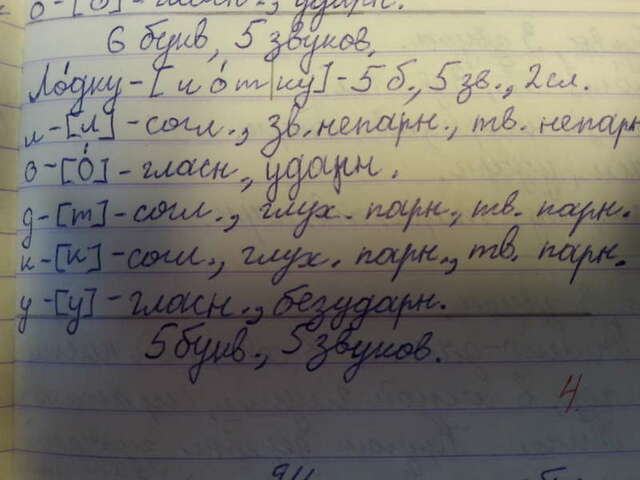 о-[о́]-гласн., ударн.
6 букв, 5 звуков,
Ло́дку-[л о́ т|ку]-5 б., 5 зв., 2 сл.
л-[л]-согл., зв. непарн., тв. непарн
о-[о́]-гласн., ударн.
д-[т]-согл., глух. парн., тв. парн.
к-[к]-согл., глух. парн., тв. парн.
у-[у]-гласн., безударн.
5 букв., 5 звуков.
4